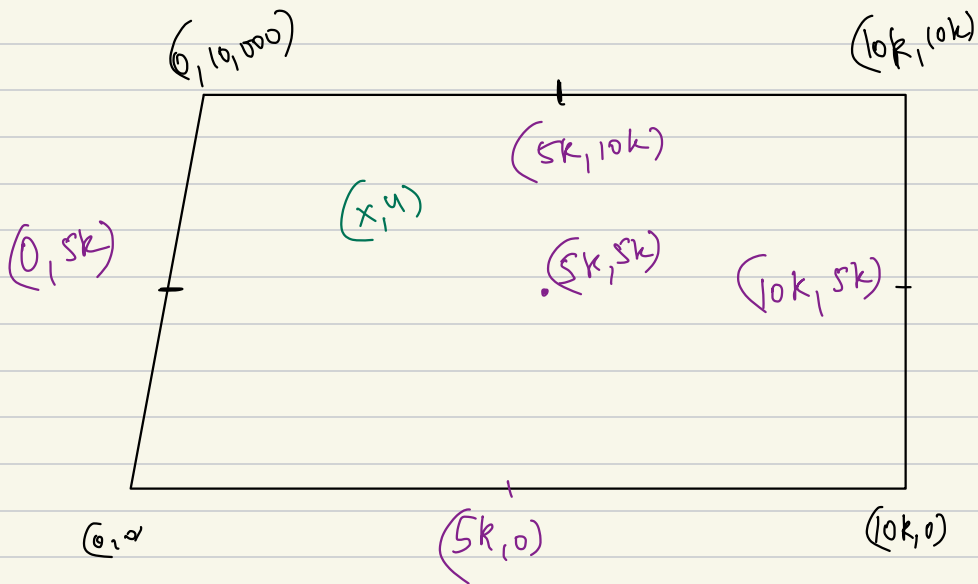 (0,10,000)
(10k,10k)
(5k,10k)
(x,y)
(0,5k)
(5k,5k)
(10k,5k)
(0,0
(5k,0)
(10k,0)